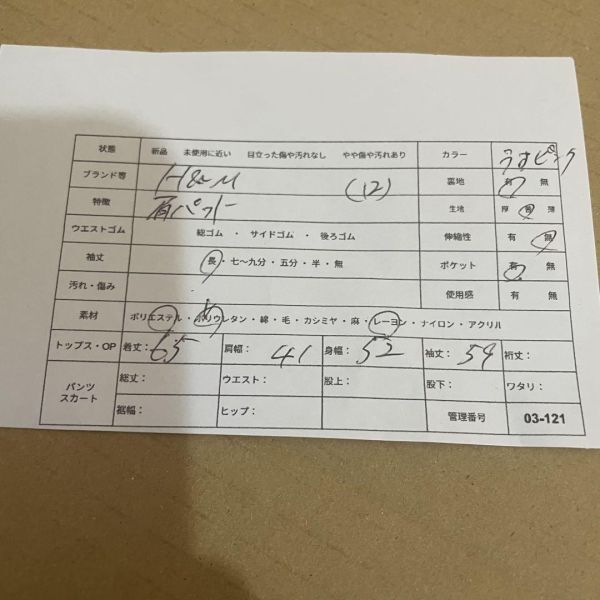 状態 新品 未使用に近い 目立った傷や汚れなし やや傷や汚れあり カラー うすピンク
ブランド等 H&M (12) 裏地 有 無
特徴 肩パット 生地 厚 普 薄
ウエストゴム 総ゴム ・ サイドゴム ・ 後ろゴム 伸縮性 有 無
袖丈 長・七〜九分・五分・半・無 ポケット 有 無
汚れ・傷み 使用感 有 無
素材 ポリエステル・ポリウレタン・綿・毛・カシミヤ・麻・レーヨン・ナイロン・アクリル
トップス・OP 着丈：65 肩幅：41 身幅：52 袖丈：59 裄丈：
パンツ スカート 総丈： ウエスト： 股上： 股下： ワタリ：
裾幅： ヒップ： 管理番号 03-121